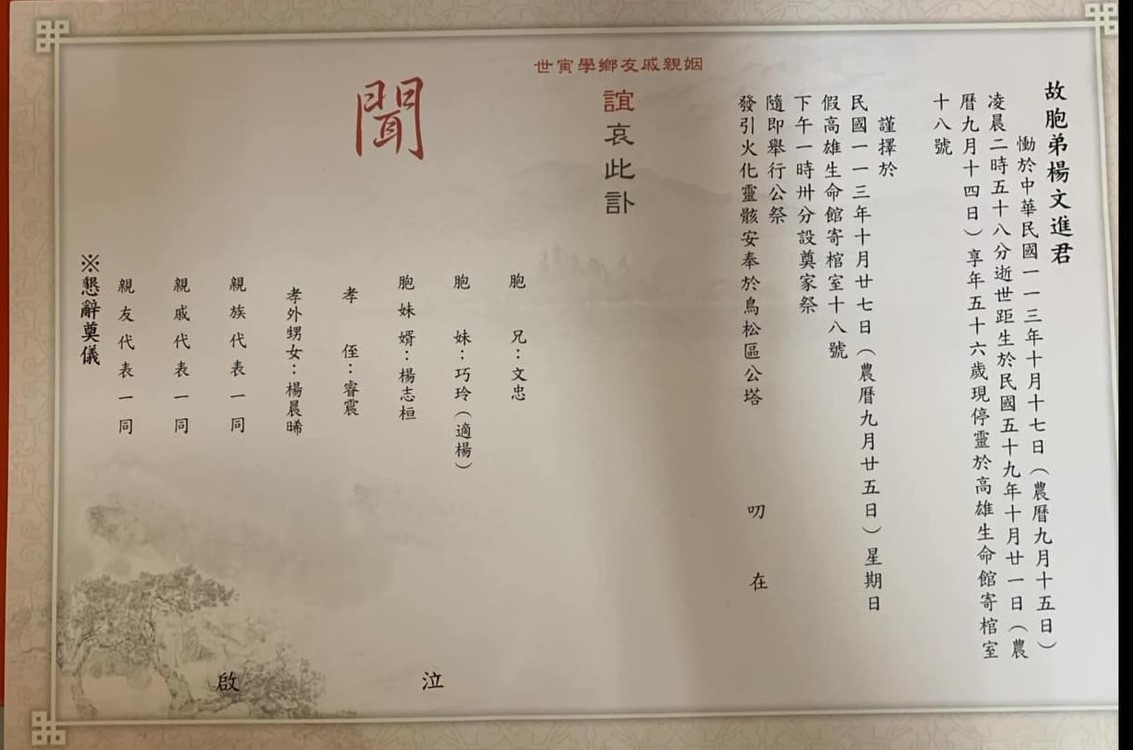 故胞弟楊文進君
慟於中華民國一一三年十月十七日（農曆九月十五日）
凌晨二時五十八分逝世距生於民國五十九年十月廿一日（農
曆九月十四日）享年五十六歲現停靈於高雄生命館寄棺室
十八號
謹擇於
民國一一三年十月廿七日（農曆九月廿五日）星期日
假高雄生命館寄棺室十八號
下午一時卅分設奠家祭
隨即舉行公祭
發引火化靈骸安奉於鳥松區公塔 叨在
姻親戚友鄉學寅世
誼哀此訃
聞
胞兄：文忠
胞妹：巧玲（適楊）
胞妹婿：楊志桓
孝侄：睿震
孝外甥女：楊晨晞
親族代表一同
親戚代表一同
親友代表一同
泣啟
※懇辭奠儀